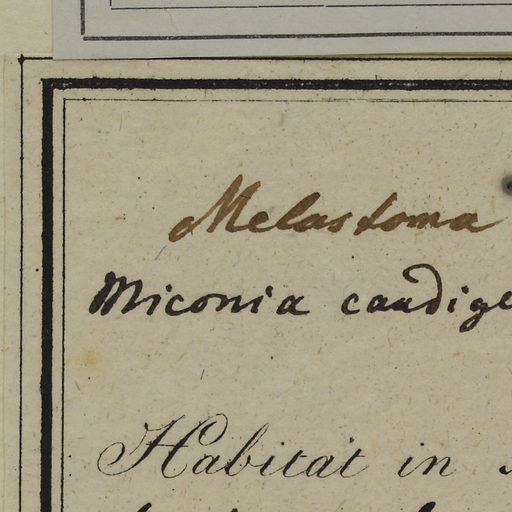 Melastoma
Miconia caudige
Habitat in